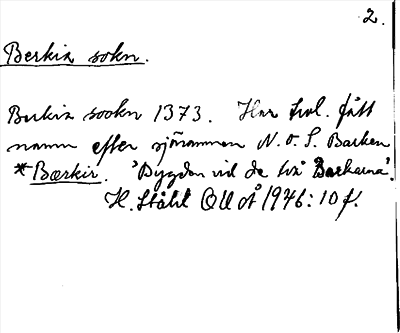 2.
Berkia sokn.
Berkia sookn 1373. Har trol. fått
namn efter sjönamnen N. o. S. Barken
*Bærkir. 'Bygden vid de två Barkarna'.
H. Ståhl OU o Å 1946: 10 f.